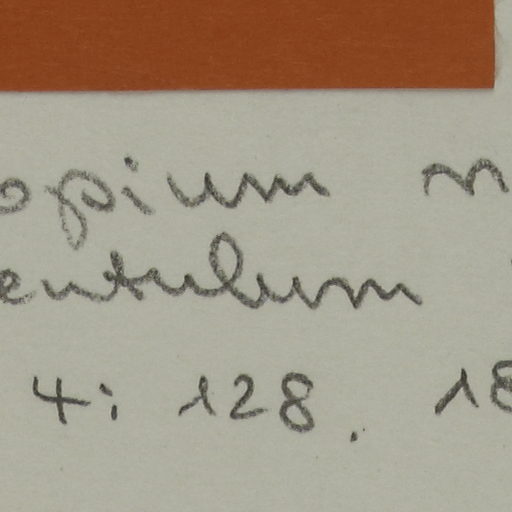 opium n
entulum
4: 128. 18